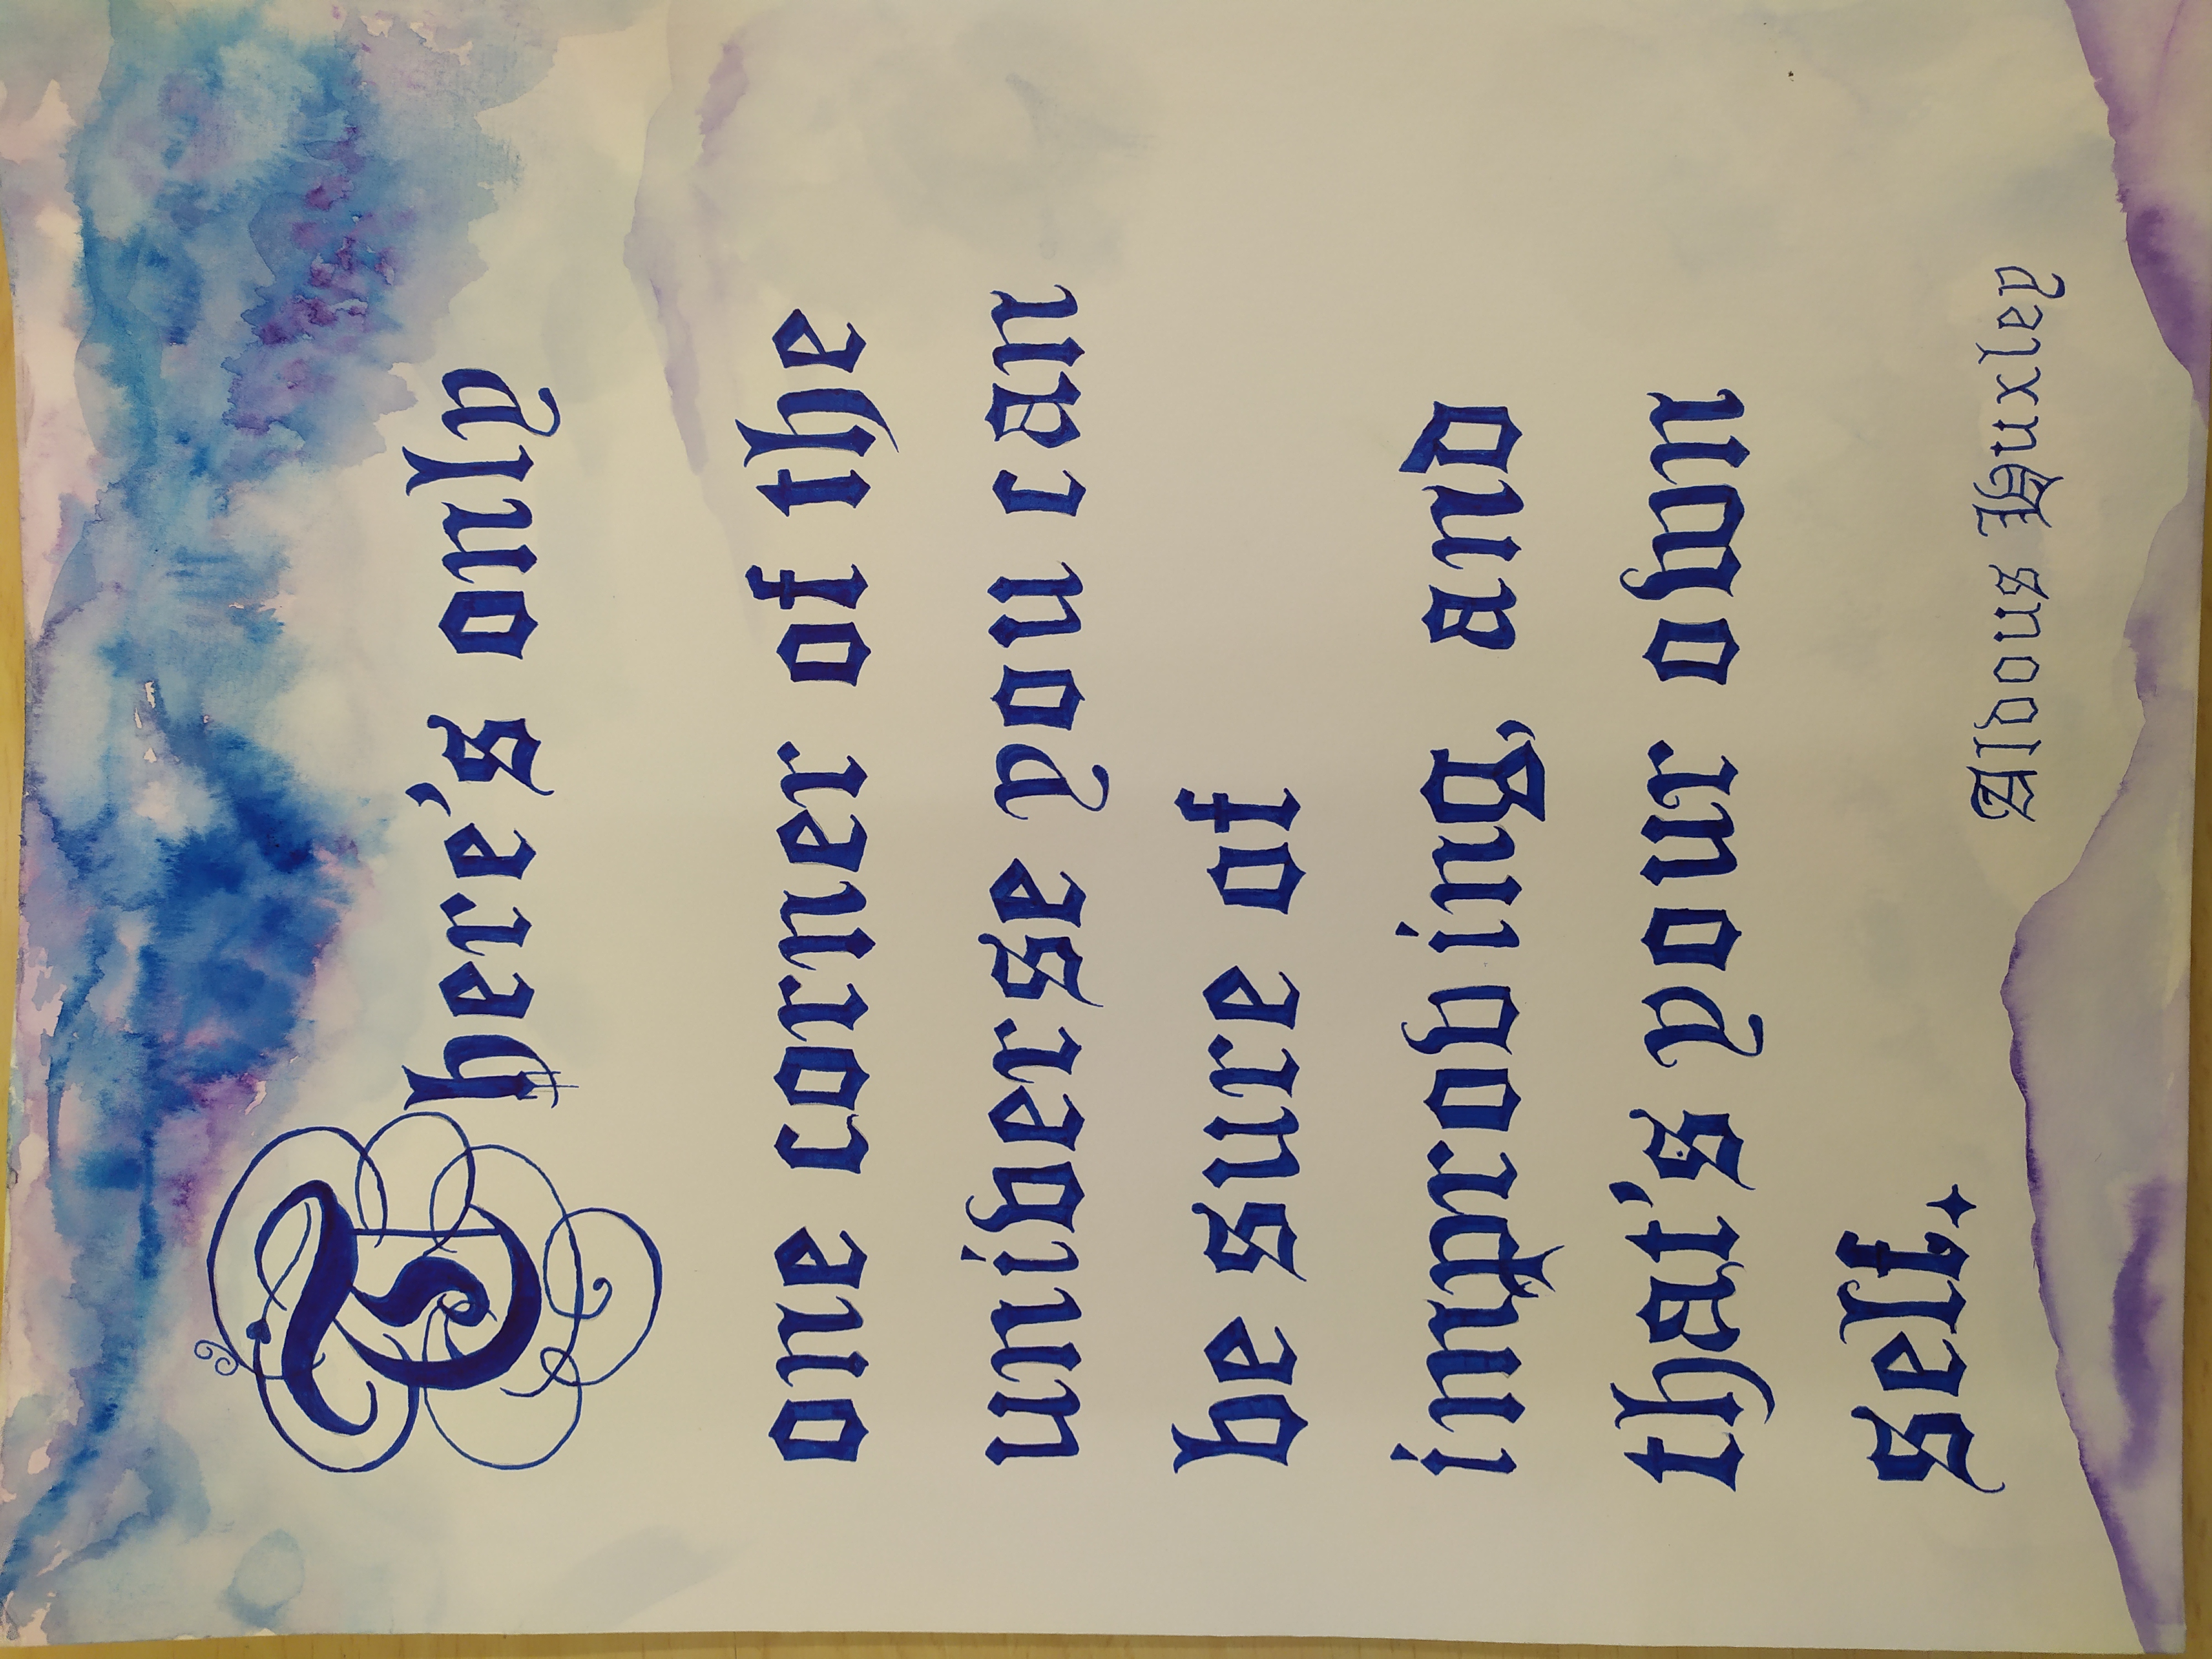 There's only
one corner of the
universe you can
be sure of
improving, and
that's your own
self.
Aldous Huxley